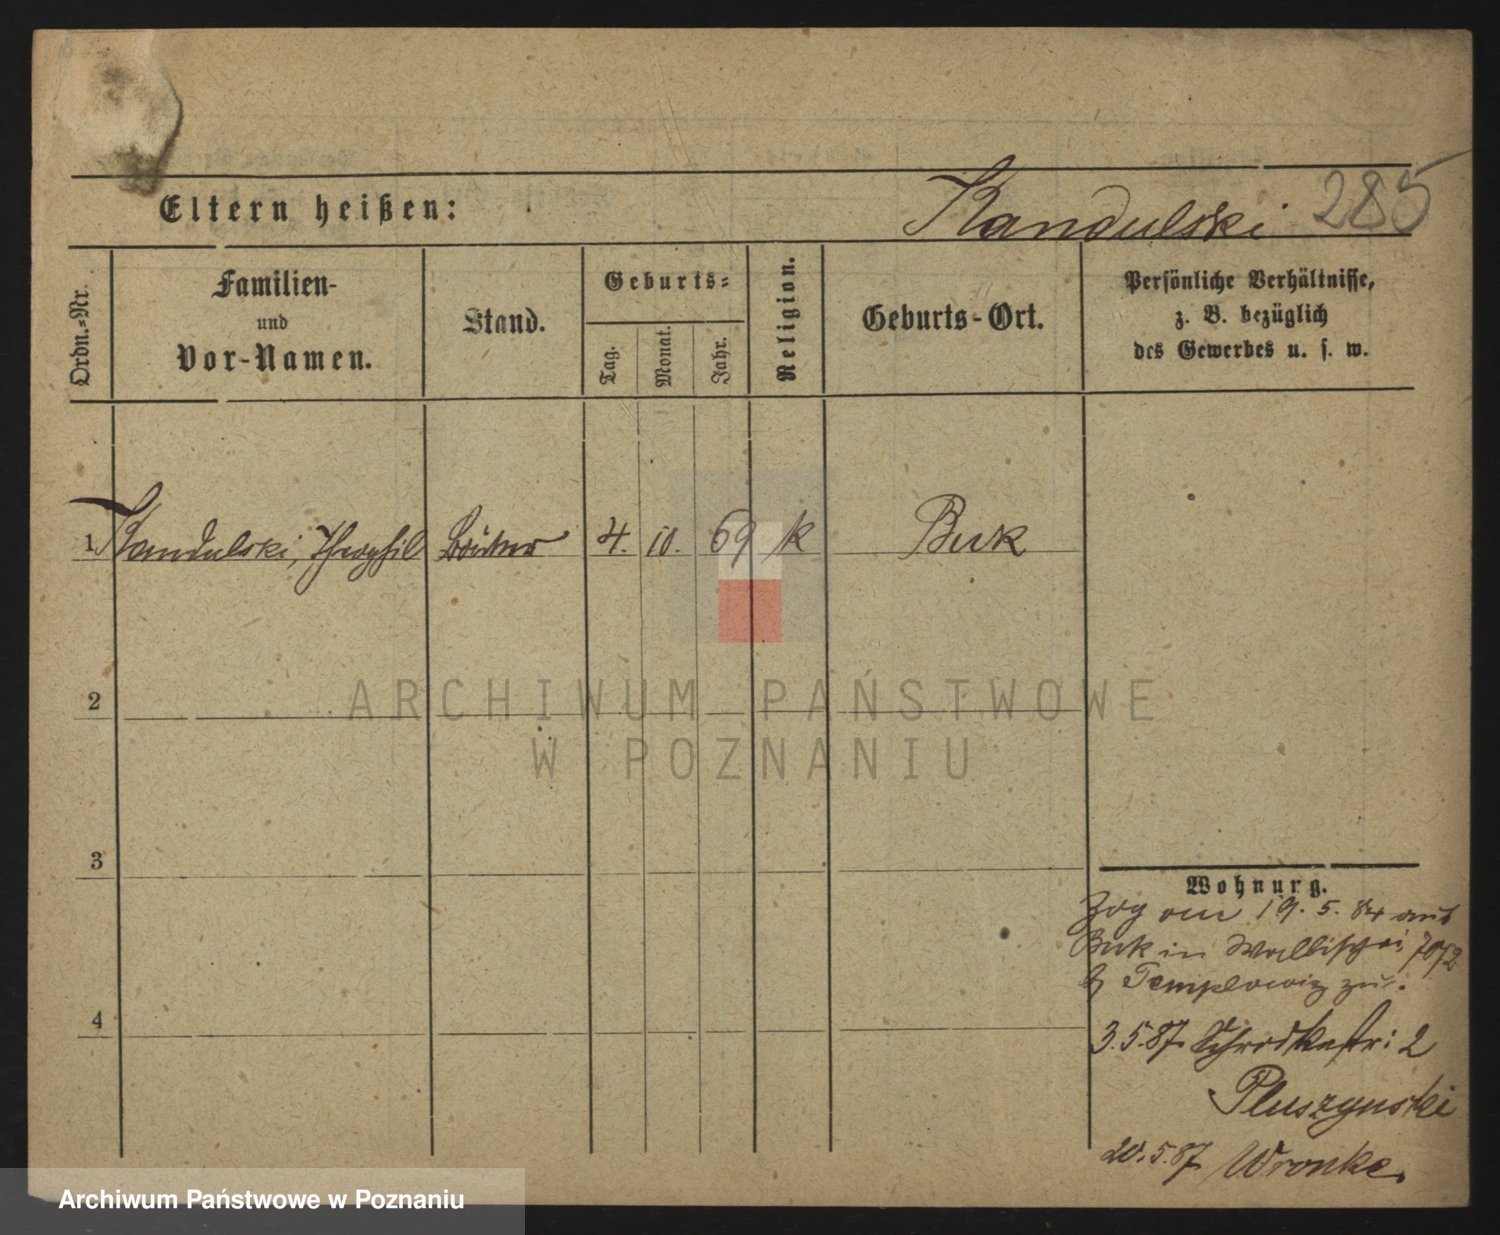 Eltern heißen:
Kandulski 285
Ordn.-Nr.
Familien-
und
Vor-Namen.
Stand.
Geburts-
Tag.
Monat.
Jahr.
Religion.
Geburts-Ort.
Persönliche Verhältnisse,
z. B. bezüglich
des Gewerbes u. s. w.
1 Kandulski, Theophil 4. 10. 69 k Buk
2
ARCHIWUM PAŃSTWOWE
W POZNANIU
3
Wohnung.
Zog am 19. 5. aus
Buk in Wallischei 70/2
b Templowitz zu.
4
3.5.87. Schrodkastr: 2
Pluszynski
20.5.87 Wronke.
Archiwum Państwowe w Poznaniu